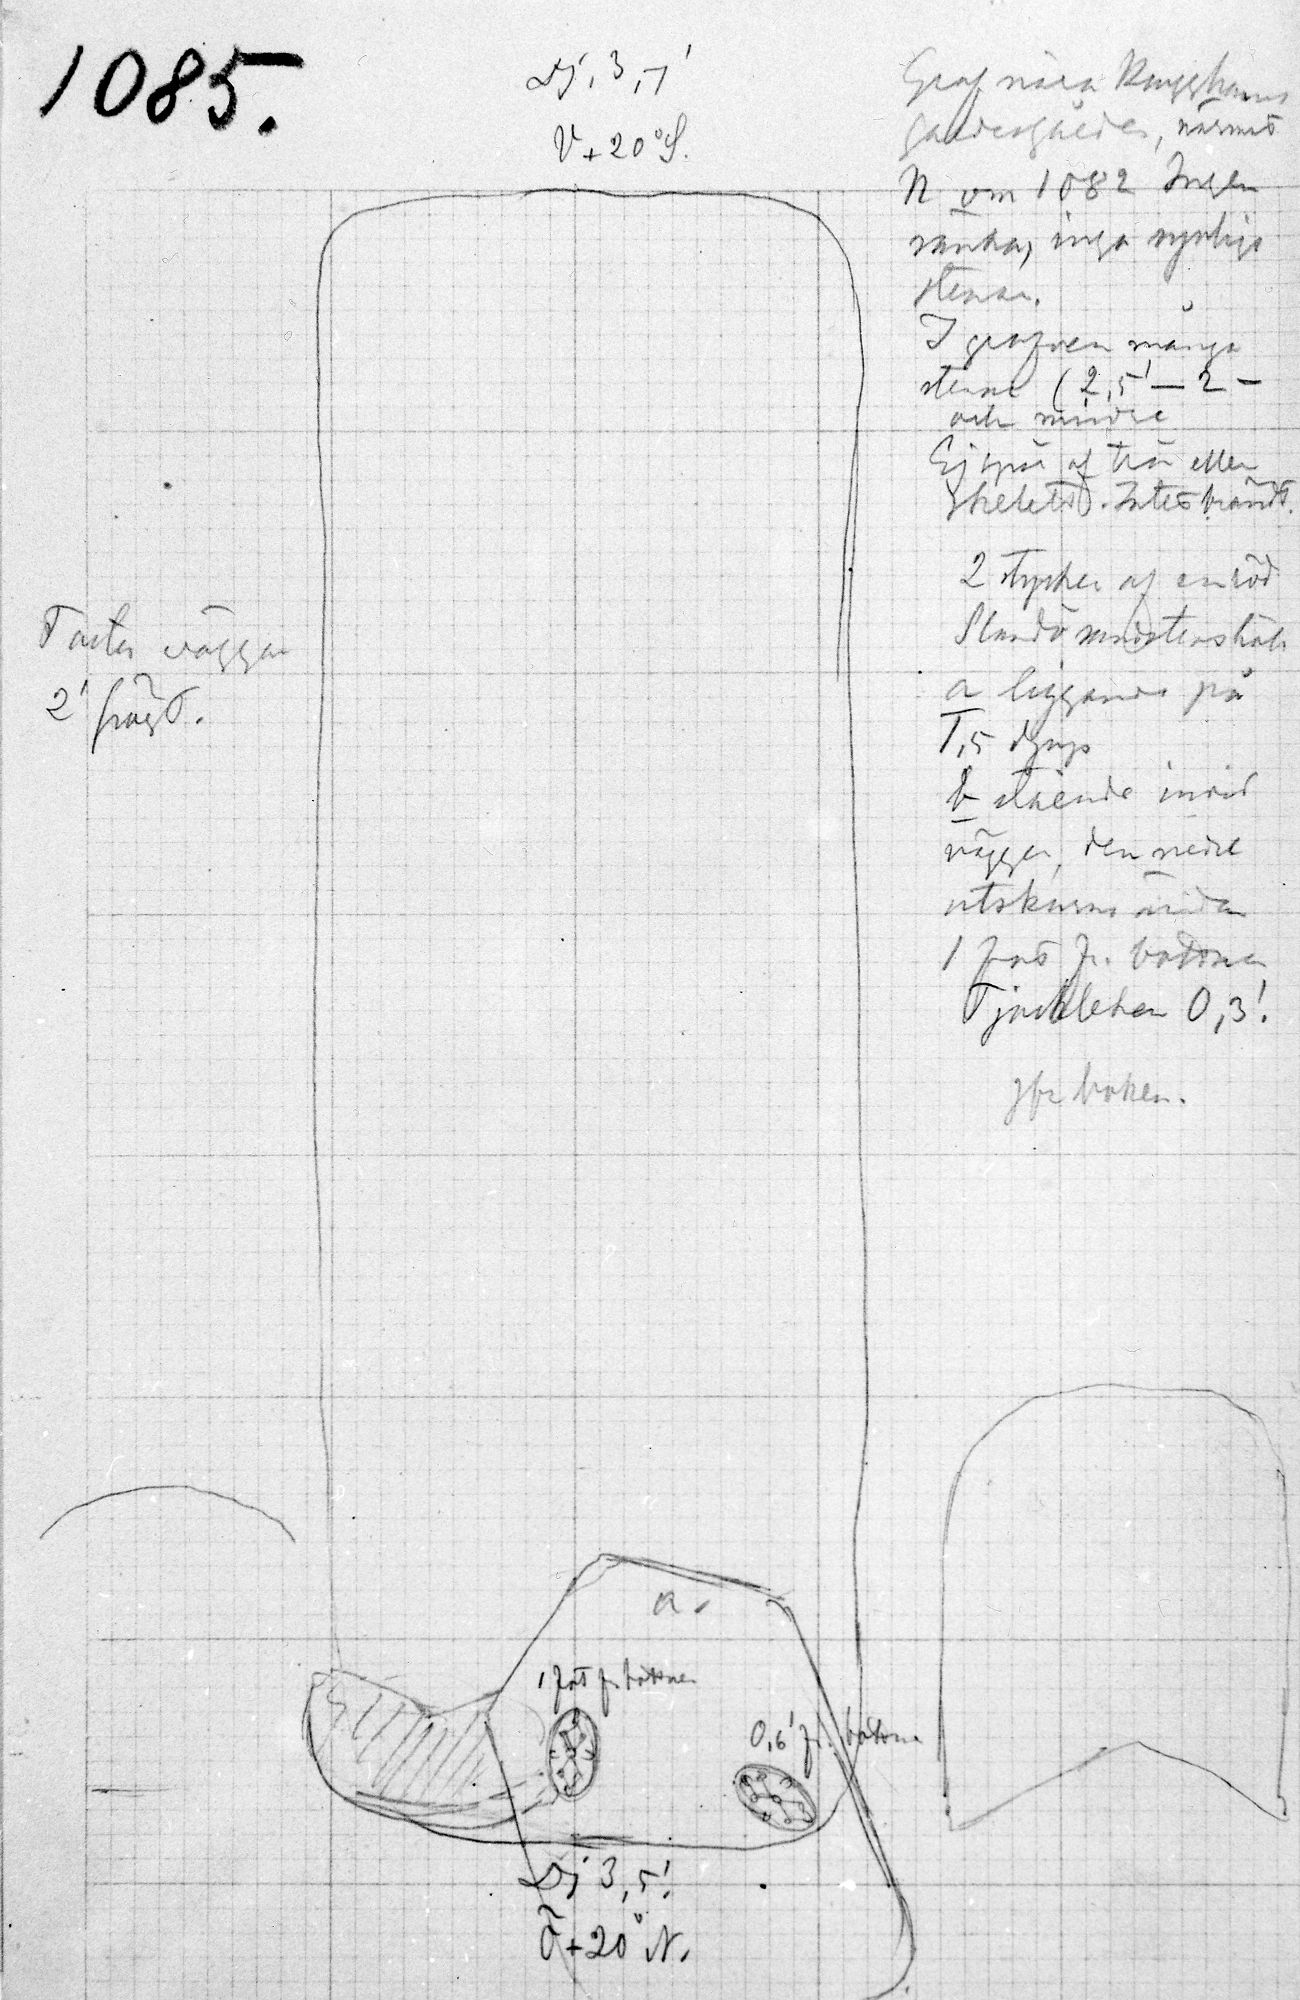 1085.
Dj. 3,7'
V + 20° S.
Graf nära
närmast
N om 1082 Ingen
ränna, inga synliga
stenar.
I grafven många
stenar (2,5' — 2 –
och mindre
Ej spår af trä eller
skelett. Intet brändt.
2 stycken af en röd
a liggande på
1,5 djup
b stående invid
väggen, den nedre
utskurna ändan
1 fot fr. bottnen
Tjockleken 0,3'.
jfr boken.
Fasta väggar
2' högt.
a.
1 fot fr bottnen
0,6' fr. bottnen
Dj 3,5'.
Ö + 20° N.